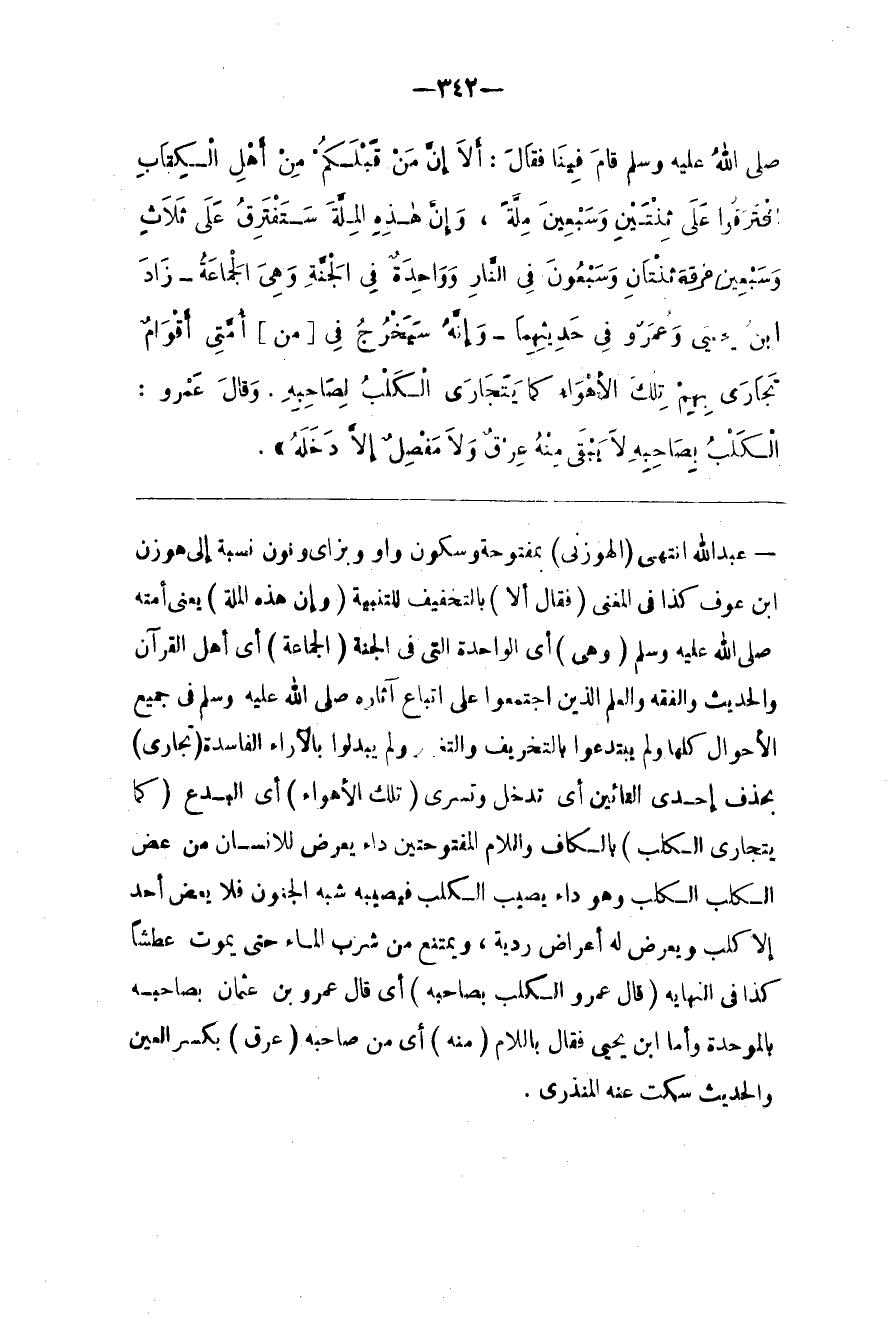 —٣٤٢—
صلى اللهُ عليه وسلم قامَ فِينَا فقالَ : أَلاَ إنَّ مَنْ قَبْلَـكُمْ مِنْ أَهْلِ الْـكِتَابِ
افْتَرَقُوا عَلَى ثِنْتَـيْنِ وَسَبْعِينَ مِلَّةً ، وَإنَّ هٰـذِهِ المِلَّةَ سَـتَفْتَرِقُ عَلَى ثَلاَثٍ
وَسَبْعِينَ فرقة ثنْتَانِ وَسَبْعُونَ فِى النَّارِ وَوَاحِدَةٌ فِى الْجَنَّةِ وَهِىَ الْجَمَاعَةُ ــ زَادَ
ابنُ يَحْيَى وَعَمْرٌو فِى حَدِيثِهِمَا ــ وَإنَّهُ سَيَخْرُجُ فِى [ من ] أُمَّتِى أَقْوَامٌ
تَجَارَى بِهِمْ تِلْكَ الأهْوَاء كما يَتَجَارَى الْـكَلْبُ لِصَاحِبِهِ . وَقالَ عَمْرو :
الْـكَلْبُ بِصَاحِبِهِ لاَ يَبْقَى مِنْهُ عِرْقٌ وَلاَ مَفْصِلٌ إلاَّ دَخَلَهُ » .
— عبدالله انتهى (الهوزنى) بمفتوحة وسكون واو وبزاى ونون نسبة إلى هوزن
ابن عوف كذا فى المغنى ( فقال ألا ) بالتخفيف للتنبية ( وإن هذه الملة ) يعنى أمته
صلى الله عليه وسلم ( وهى ) أى الواحدة التى فى الجنة ( الجماعة ) أى أهل القرآن
والحديث والفقه والعلم الذين اجتمعوا على اتباع آثاره صلى الله عليه وسلم فى جميع
الأحوال كلها ولم يبتدعوا بالتخريف ولم يبدلوا بالآراء الفاسدة (تجارى)
بحذف إحـدى التائين أى تدخل وتسرى ( تلك الأهواء ) أى البـدع ( كما
يتجارى الـكلب ) بالـكاف واللام المفتوحتين داء يعرض للانسـان من عض
الـكلب الـكلب وهو داء يصيب الـكلب فيصيبه شبه الجنون فلا يعض أحد
إلا كلب ويعرض له أعراض ردية ، ويمتنع من شرب المـاء حتى يموت عطشاً
كذا فى النهايه ( قال عمرو الـكلب بصاحبه ) أى قال عمرو بن عثمان بصاحبـه
بالموحدة وأما ابن يحيى فقال باللام ( منه ) أى من صاحبه ( عرق ) بكسر العين
والحديث سكت عنه المنذرى .